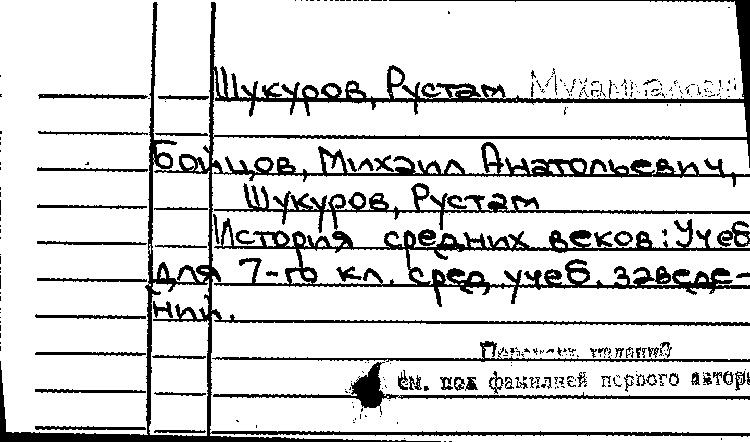 Шукуров, Рустам Мухаммадови
Бойцов, Михаил Анатольевич,
Шукуров, Рустам
История средних веков: Учеб
для 7-го кл. сред. учеб. заведе-
ний.
Перечень изданий
см. под фамилией первого автора